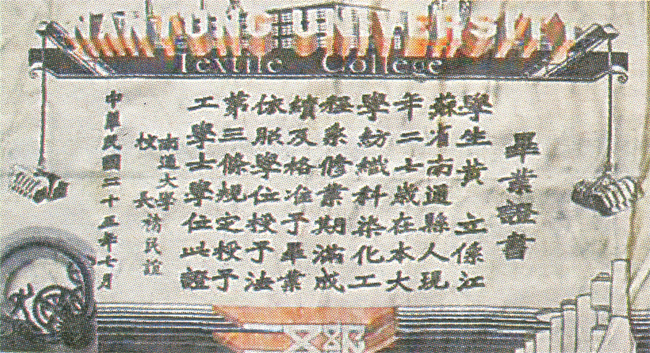 NANTUNG UNIVERSITY
Textile College
畢業證書
學生黃立係江
蘇省南通縣人現
年二歲在本大
學紡織科染化工
程系修業期滿成
績及格准予畢業
依照學位授予法
第三條規定授予
工學士學位此證
南通大學
校長褚民誼
中華民國二十五年七月